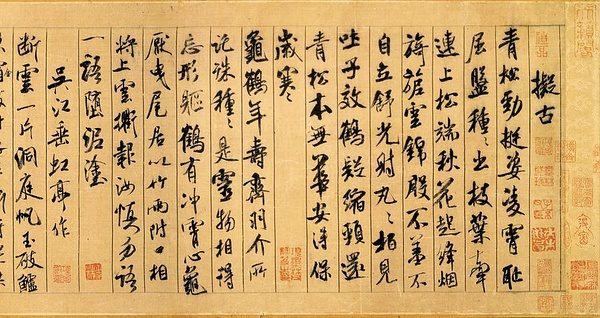 擬古
青松勁挺姿凌霄恥
屈盤種〻出枝葉牽
連上松端秋花起絳烟
旖旎雲錦殷不羞不
自立舒光射丸〻柏見
吐子效鶴疑縮頸還
青松本無華安得保
歲寒
龜鶴年壽齊羽介所
託殊種〻是靈物相得
忘形軀鶴有沖霄心龜
厭曳尾居以竹兩附口相
將上雲衢報汝慎勿語
一語墮泥塗
吳江垂虹亭作
斷雲一片洞庭帆玉破鱸